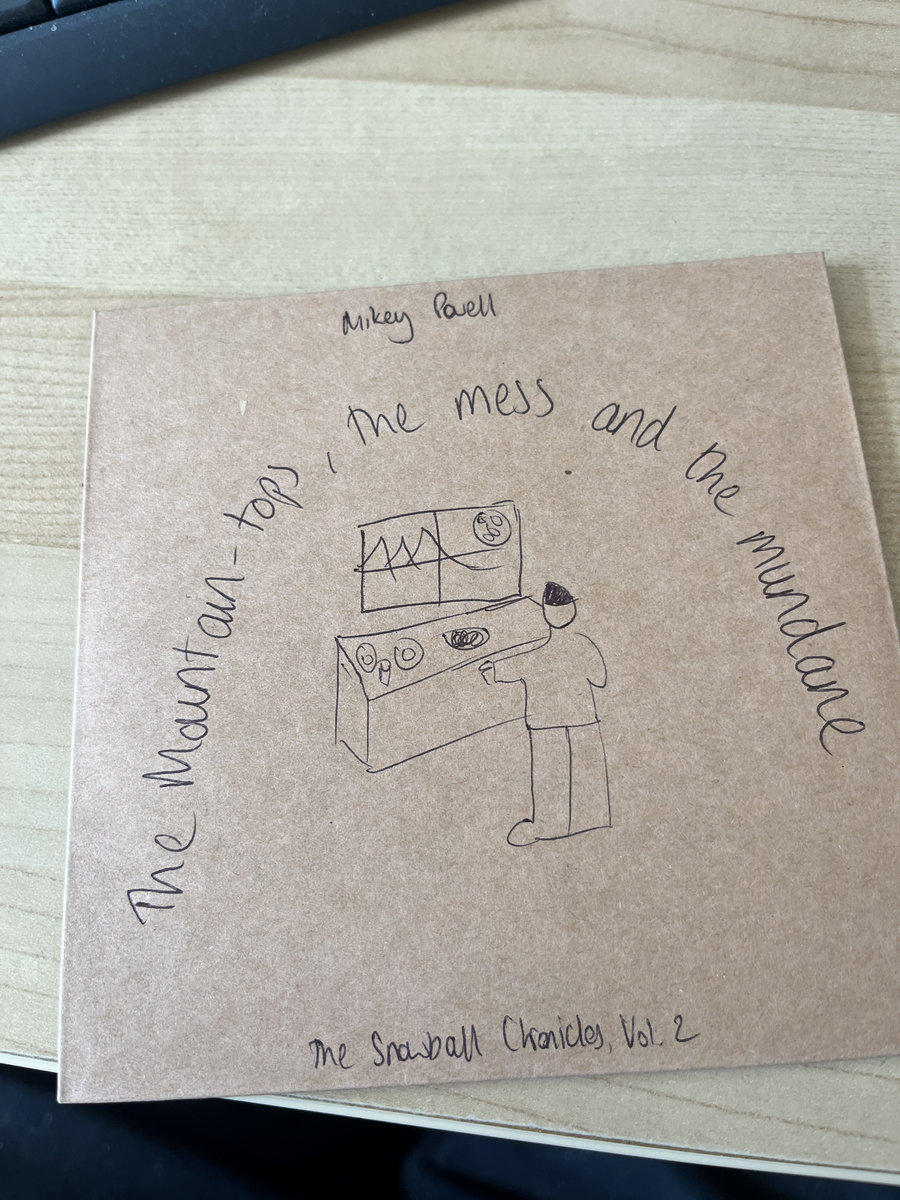 Mikey Powell
The Mountain-tops, the mess and the mundane
The Snowball Chronicles, Vol. 2